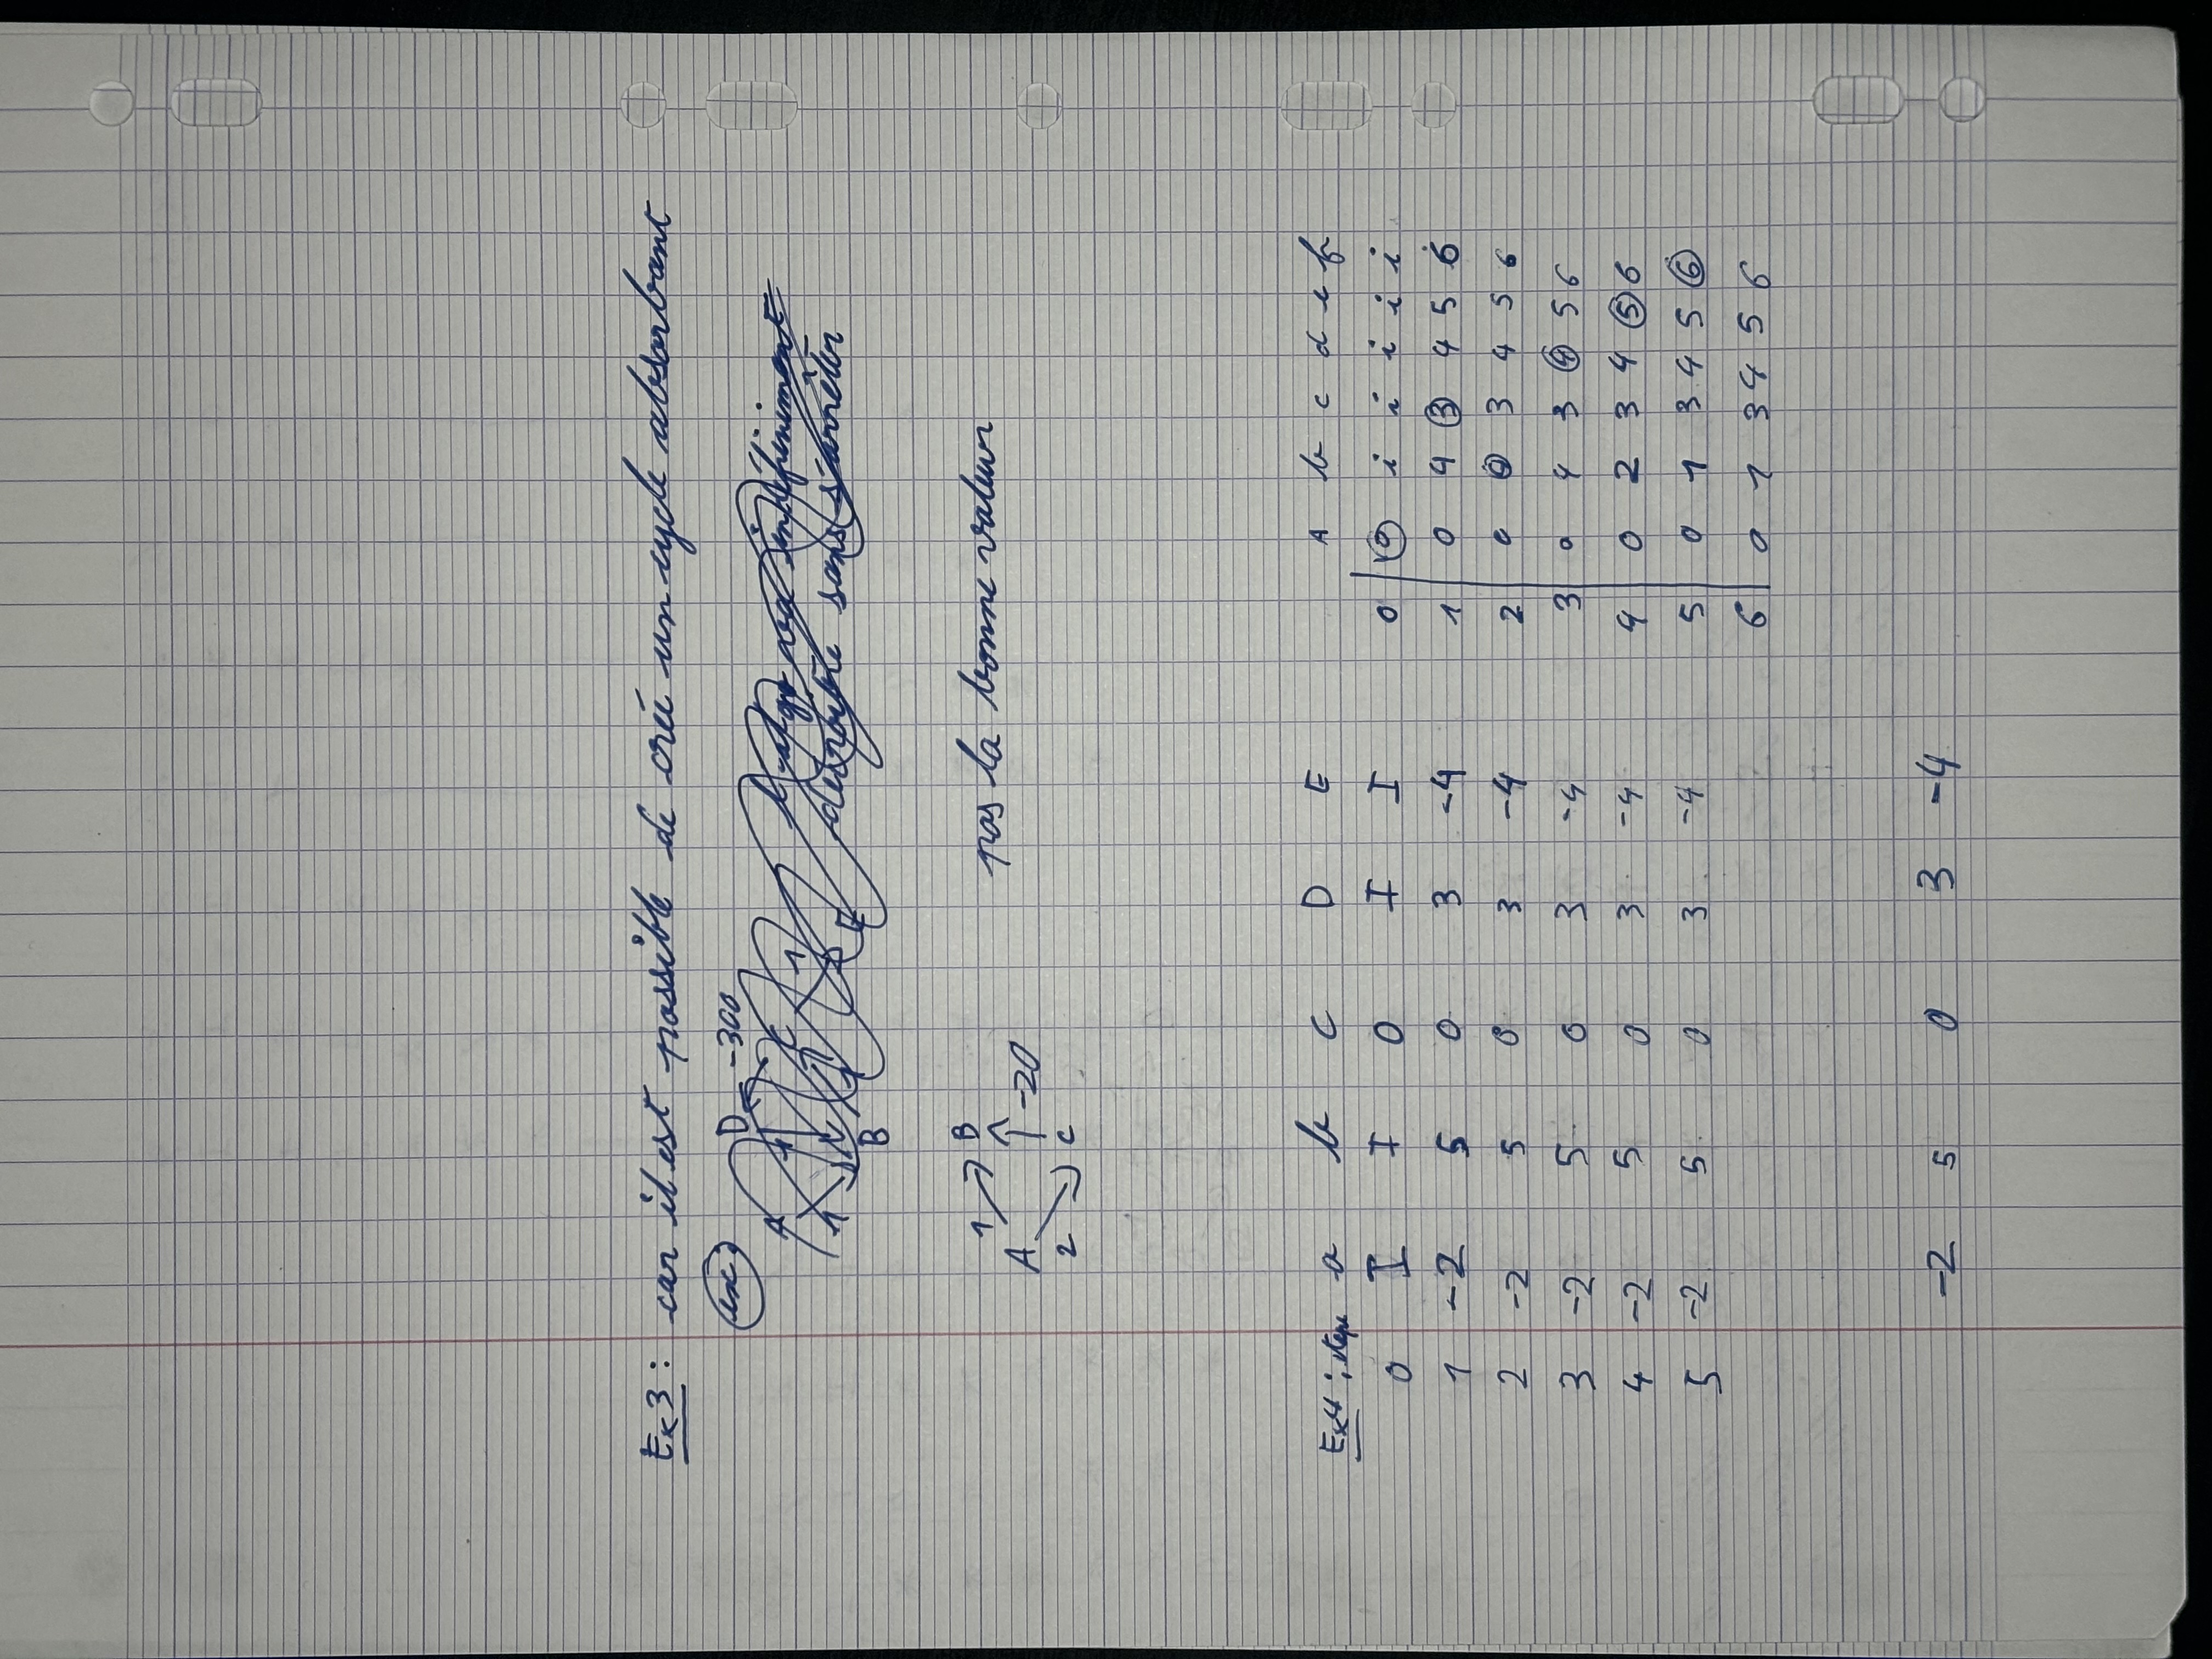 Ex3 : car il est possible de crée un cycle absorbant
ex :
D -300
A
1
1
B
E
l'algo va indéfiniment
décroître sans s'arrêter
1 B
A -20
2 C
pas la bonne valeur
Ex4 : étape a b C D E
0 I I 0 I I
1 -2 5 0 3 -4
2 -2 5 0 3 -4
3 -2 5 0 3 -4
4 -2 5 0 3 -4
5 -2 5 0 3 -4
A b c d e f
0 0 i i i i i
1 0 4 3 4 5 6
2 0 4 3 4 5 6
3 0 4 3 4 5 6
4 0 2 3 4 5 6
5 0 1 3 4 5 6
6 0 1 3 4 5 6
-2 5 0 3 -4